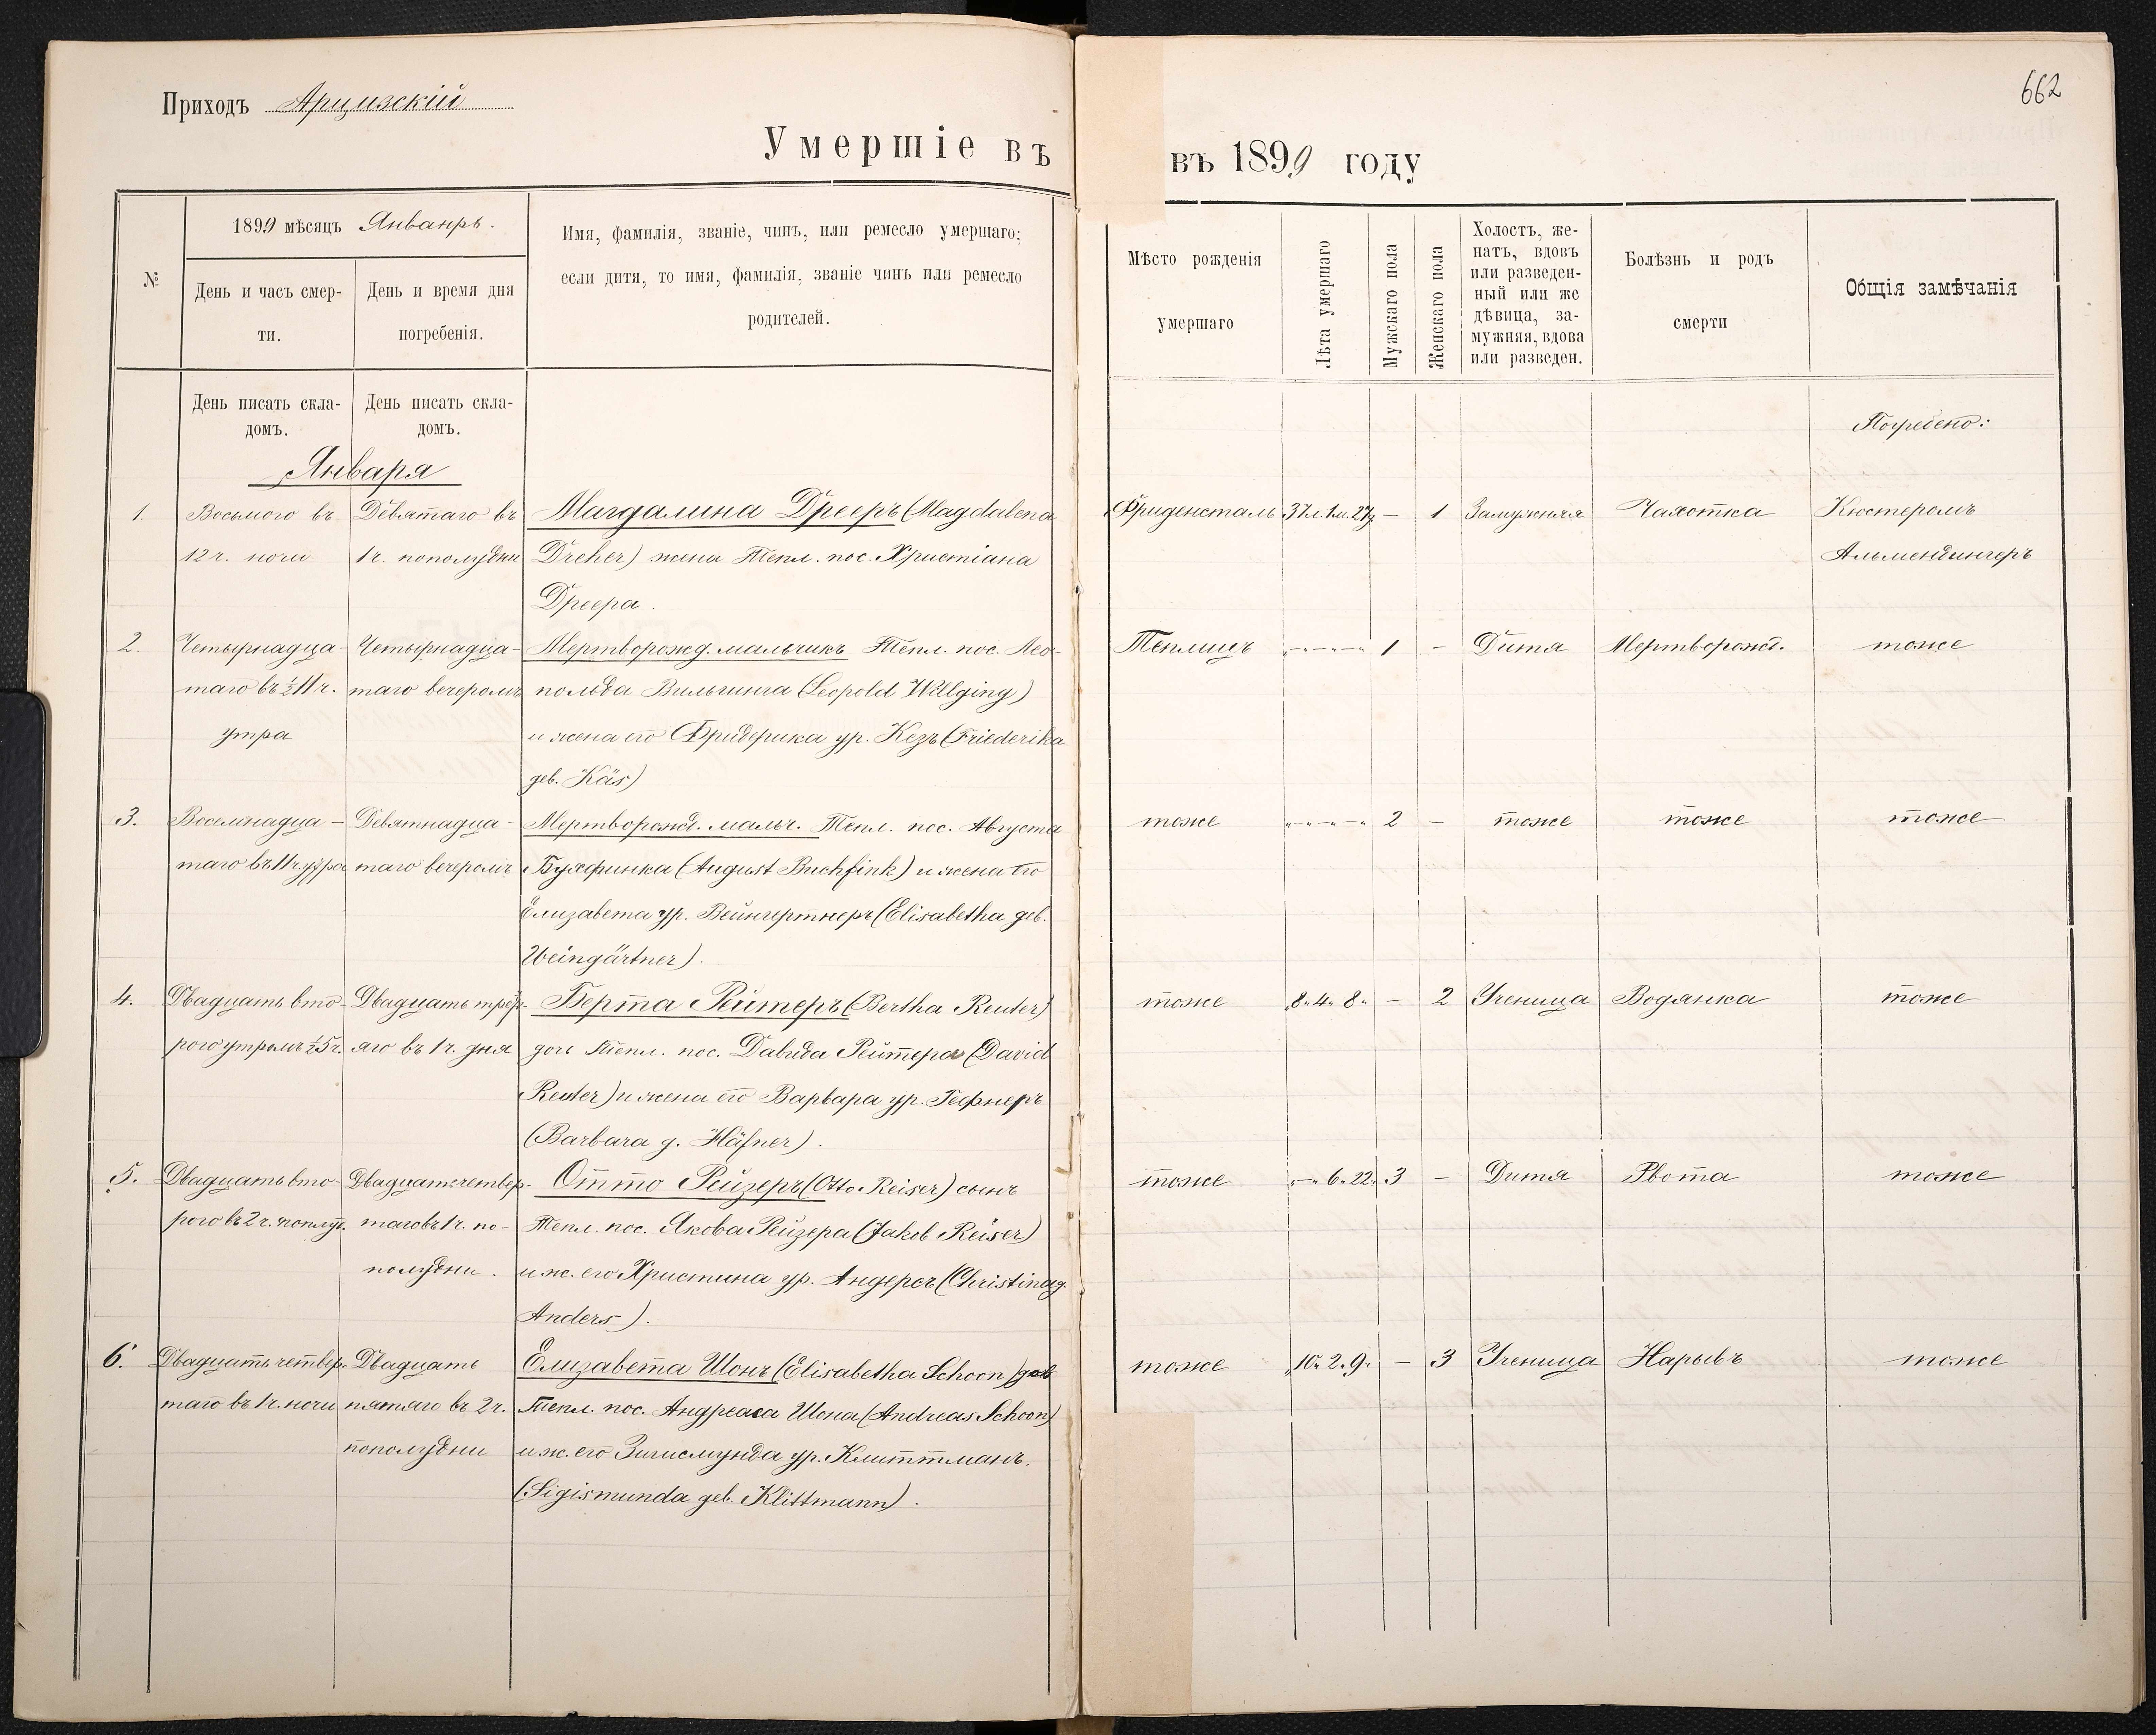 Приходъ Арцизскій
Умершіе въ
въ 1899 году
662
№
1899 мѣсяцъ Январь.
День и часъ смер-
ти.
День и время дня
погребенія.
Имя, фамилія, званіе, чинъ, или ремесло умершаго;
если дитя, то имя, фамилія, званіе чинъ или ремесло
родителей.
Мѣсто рожденія
умершаго
Лѣта умершаго
Мужскаго пола
Женскаго пола
Холостъ, же-
натъ, вдовъ
или разведен-
ный или же
дѣвица, за-
мужняя, вдова
или разведен.
Болѣзнь и родъ
смерти
Общія замѣчанія
День писать скла-
домъ.
День писать скла-
домъ.
Января
Погребено:
1. Восьмого въ Девятаго въ Магдалина Дрееръ (Magdalena Фриденсталь 37л.1м.27д — 1 Замужняя Чахотка Кюстеромъ
12 ч. ночи 1 ч. пополудни Dreher) жена Тепл. пос. Христіана Альмендингеръ
Дреера.
2. Четырнадца- Четырнадца- Мертворожд. мальчикъ Тепл. пос. Лео- Теплицъ „-„-„-„ 1 — Дитя Мертворожд. тоже
таго въ ½11 ч. таго вечеромъ польда Вильгинга (Leopold Willging)
утра и жена его Фридерика ур. Кезъ (Friederika
geb. Käs)
3. Восемнадца- Девятнадца- Мертворожд. мальч. Тепл. пос. Августа тоже „-„-„-„ 2 — тоже тоже тоже
таго въ 11 ч. утра таго вечеромъ Бухфинка (August Buchfink) и жена его
Елизавета ур. Вейнгертнеръ (Elisabetha geb.
Weingärtner).
4. Двадцать вто- Двадцать треть- Берта Рейтеръ (Bertha Reuter) тоже „8„4„8„ — 2 Ученица Водянка тоже
рого утромъ ½5 ч. яго въ 1 ч. дня дочь Тепл. пос. Давида Рейтера (David
Reuter) и жена его Варвара ур. Гефнеръ
(Barbara g. Häfner).
5. Двадцать вто- Двадцать четвер- Отто Рейзеръ (Otto Reiser) сынъ тоже „-„6„22„ 3 — Дитя Рвота тоже
рого въ 2 ч. пополуд. таго въ 1 ч. по- Тепл. пос. Якова Рейзера (Jakob Reiser)
полудни. и ж. его Христина ур. Андерсъ (Christina g.
Anders).
6. Двадцать четвер- Двадцать Елизавета Шонъ (Elisabetha Schoon) доч. тоже „10„2„9„ — 3 Ученица Нарывъ тоже
таго въ 1 ч. ночи пятаго въ 2 ч. Тепл. пос. Андреаса Шона (Andreas Schoon)
пополудни и ж. его Зигисмунда ур. Клиттманъ.
(Sigismunda geb. Klittmann).